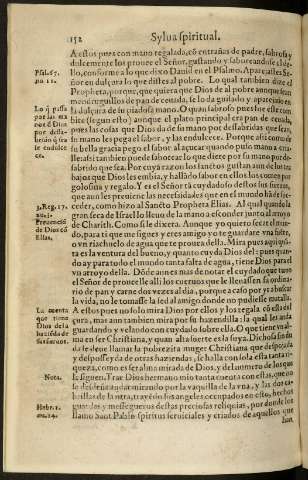 152
Sylua spiritual.
A estos pues con mano regalada, cō entrañas de padre, sabrosa y
dulcemente los prouee el Señor, gustando y saboreandose el
llo, conforme a lo que dixo Dauid en el Psalmo. Aparejastes Se
ñor en dulçura lo que distes al pobre. Lo qual tambien dize el
Propheta, porque, que quiera que Dios de al pobre aunque sean
mendruguillos de pan de ceuada, se lo da guisado y
la dulçura de su piadosa mano. O quan sabrosos pues los
bite (segun esto) aunque el plato principal era pan de ceuada,
pues las cosas que Dios da de su mano por desabridas que sean,
la mano les pega el sabor, y las endulcece. Porque assi como
bella gracia pego el sabor al açucar quando puso mano a
lle: assi tambien puede sabor lo que diere por su mano por
sabrido que sea. Por cuya razon los sanctos gustan aun de los
bajos que Dios les embia, y hallādo sabor en ellos los comē por
golosina y regalo. Y es el Señor tā cuydadoso destos sus sieruos,
que aun les preuiene las necessidades que en el mundo hā de
ceder, como hizo al Sancto Propheta Elias. Al qual quando la
gran seca de Israel lo lleuo de la mano a esconder junto al arroyo
de Charith. Como si le dixera. Aunque yo quiero secar el mun-
do, para ti que me sigues y eres amigo yo te guardare
o vn riachuelo de agua que te prouea della. Mira pues aqui
ta es la ventura del bueno, y quanto cuyda Dios del: pues quan-
do ay para todo el mundo tanta falta de agua, tiene Dios para el
vn arroyo della. Dōde aun es mas de notar el cuydado que tuuo
el Señor de proueelle alli los cueruos que le lleuassen su ordina-
rio de pan y carne dos vezes al dia, porque a caso por yr a buscar
la vida, no le tomasse la sed al amigo donde no pudiesse matalla.
A estos pues no solo mira Dios por ellos y los regala cō esta
nera, mas aun tambien mira por su hazendilla: la qual les
guardando y velando con cuydado sobre ella. O que tiene
ma en ser Christiana, y quan alta suerte es la suya. Dichosa sin
da se deue llamar la pobreza muger Christiana que despojada
y desposseyda de otras haziendas, se halla con sola esta tanta ri-
queza, como es ser alma mirada de Dios, y del numero de los que
le siguen. Trae Dios hermano mio tanta cuenta con estas, que no
mirando por la vaquilla de la vna, y las dos
brillas de la otra, trayēdo sus angeles ocupados en esto, hechos
guardas y messegueros destas preciosas reliquias, por donde los
llamo Sant Pablo spiritus seruiciales y criados de aquellos que
han
Psal. 67.
nu. 11.
Lo q̄ passa
por las ma
nos d̄ Dios
por desa-
brido q̄ sea
se endulce
ce.
3. Reg. 17.
nu. 2.
Preuencíō
de Dios cō
Elias.
La cuenta
que tiene
Dios de la
haziēda de
sus sieruos.
Nota.
Hebr. 1.
nu. 14.